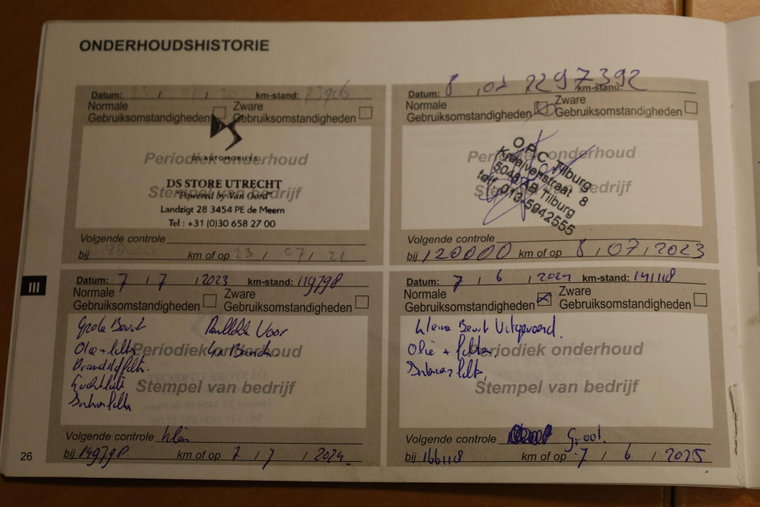 ONDERHOUDSHISTORIE
Datum: 23 / 07 / 20 km-stand: 23906
Normale Gebruiksomstandigheden
Zware Gebruiksomstandigheden
Periodiek onderhoud
Stempel van bedrijf
DS AUTOMOBILES
DS STORE UTRECHT
"Powered by Van Oord"
Landzigt 28 3454 PE de Meern
Tel : +31 (0)30 658 27 00
Volgende controle
bij km of op 23 / 07 / 21
Datum: 8 / 07 22 97392 km-stand:
Normale Gebruiksomstandigheden
Zware Gebruiksomstandigheden
Periodiek onderhoud
Stempel van bedrijf
O.P.C. Tilburg
Kraaivenstraat 8
5048 AB Tilburg
telf 013-5942555
Volgende controle
bij 120000 km of op 8 / 07 / 2023
III
Datum: 7 / 7 / 2023 km-stand: 119798
Normale Gebruiksomstandigheden
Zware Gebruiksomstandigheden
Grote Beurt Voor
Olie + filter
Periodiek onderhoud
Stempel van bedrijf
Volgende controle klein
bij 149798 km of op 7 / 7 / 2024
Datum: 7 / 6 / 2024 km-stand: 141118
Normale Gebruiksomstandigheden
Zware Gebruiksomstandigheden
kleine Beurt Uitgevoerd.
Olie + filter
Periodiek onderhoud
Stempel van bedrijf
Volgende controle Groot.
bij 166118 km of op 7 / 6 / 2025
26